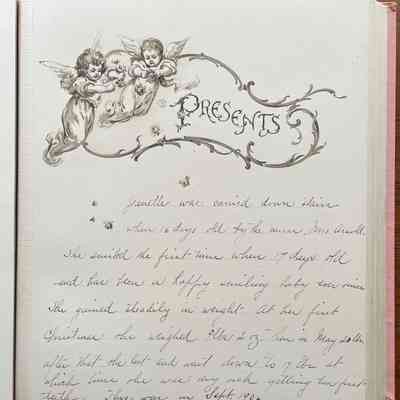 PRESENTS
Jenelle was carried down stairs
when 16 days old by the nurse, Mrs
She smiled the first time when 17 days old
and has been a happy smiling baby ever since
She gained steadily in weight. At her first
Christmas she weighed 9 lbs 2 oz. then in May 20 lbs
after that she lost and went down to 17 lbs at
which time she was very sick getting her first
teeth. This was in Sept